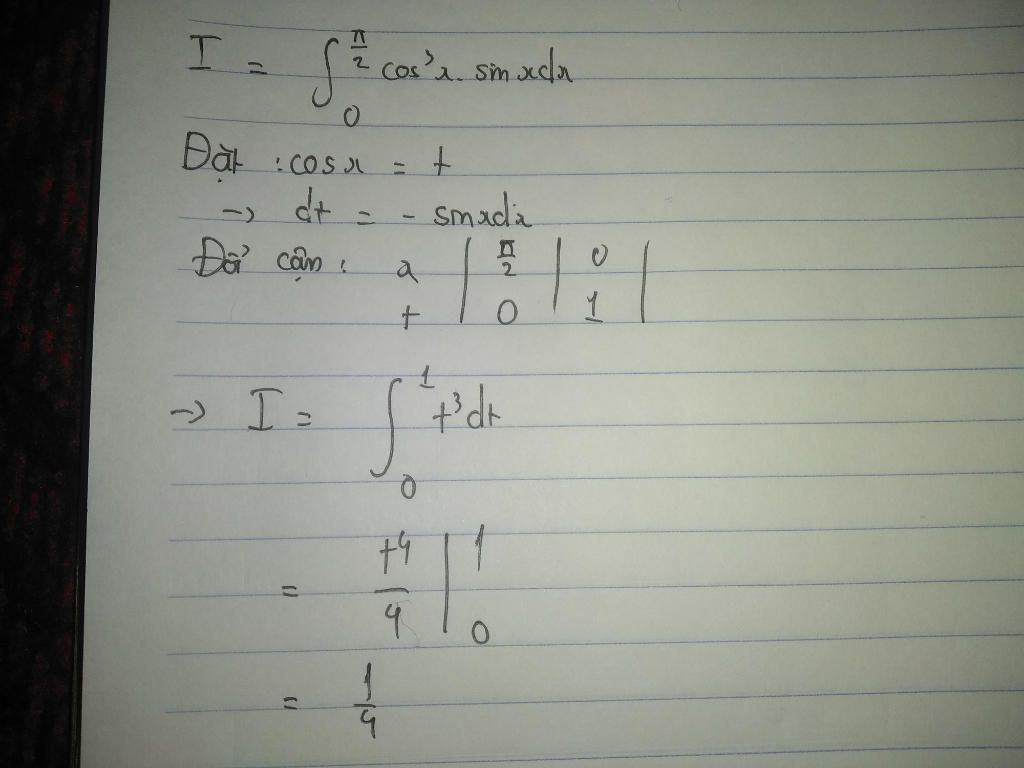 I = ∫₀^(π/2) cos³x. sinxdx
Đặt : cosx = t
→ dt = - sinxdx
Đổi cận: x | π/2 | 0 |
t | 0 | 1 |
→ I = ∫₀¹ t³dt
= t⁴/4 |₀¹
= 1/4